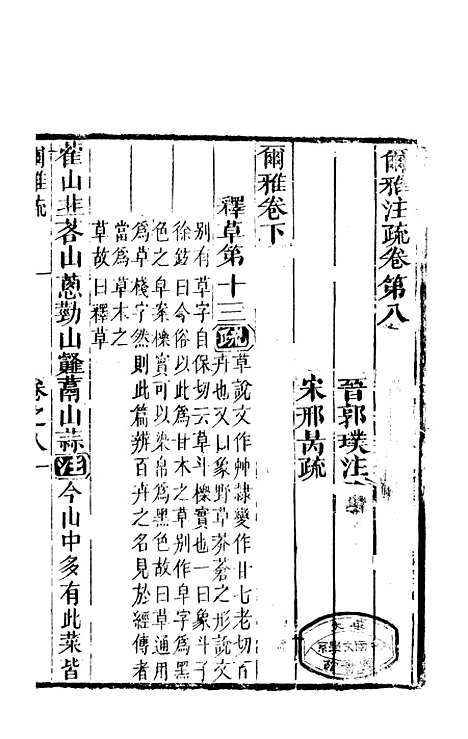 爾雅注疏卷第八
晉郭璞注
宋邢昺疏
爾雅卷下
釋草第十三疏草說文作艸隷變作廿七老切百
卉也又以象野草莽蒼之形說文
別有草字自保切云草斗櫟實也一曰象斗子
徐鉉曰今俗以此爲廿木之草別作皁字爲黑
色之皁案櫟實可以染帛爲黑色故曰草通用
爲草棧字然則此篇辨百卉之名見於經傳者
當爲草木之
草故曰釋草
藿山韭茖山蔥勤山䪥蒚山蒜注今山中多有此菜皆
爾雅疏 卷之八 一